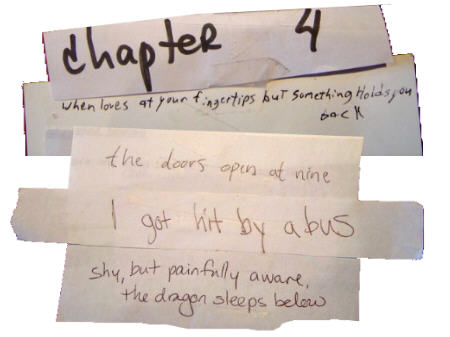 chapter 4
when loves at your fingertips but something holds you
back
the doors open at nine
I got hit by a bus
shy, but painfully aware,
the dragon sleeps below